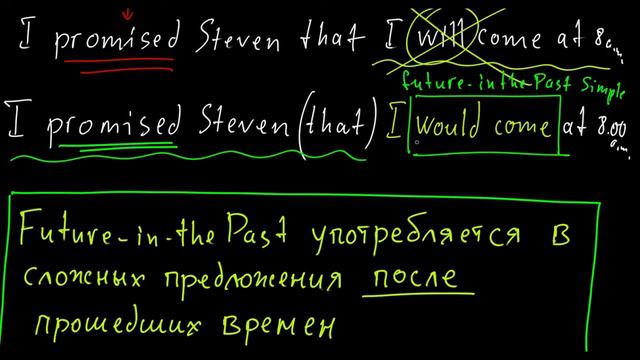 I promised Steven that I will come at 8 a.m.
Future-in the Past Simple
I promised Steven (that) I would come at 8.00 a.m.
Future-in-the Past употребляется в
сложных предложения после
прошедших времен